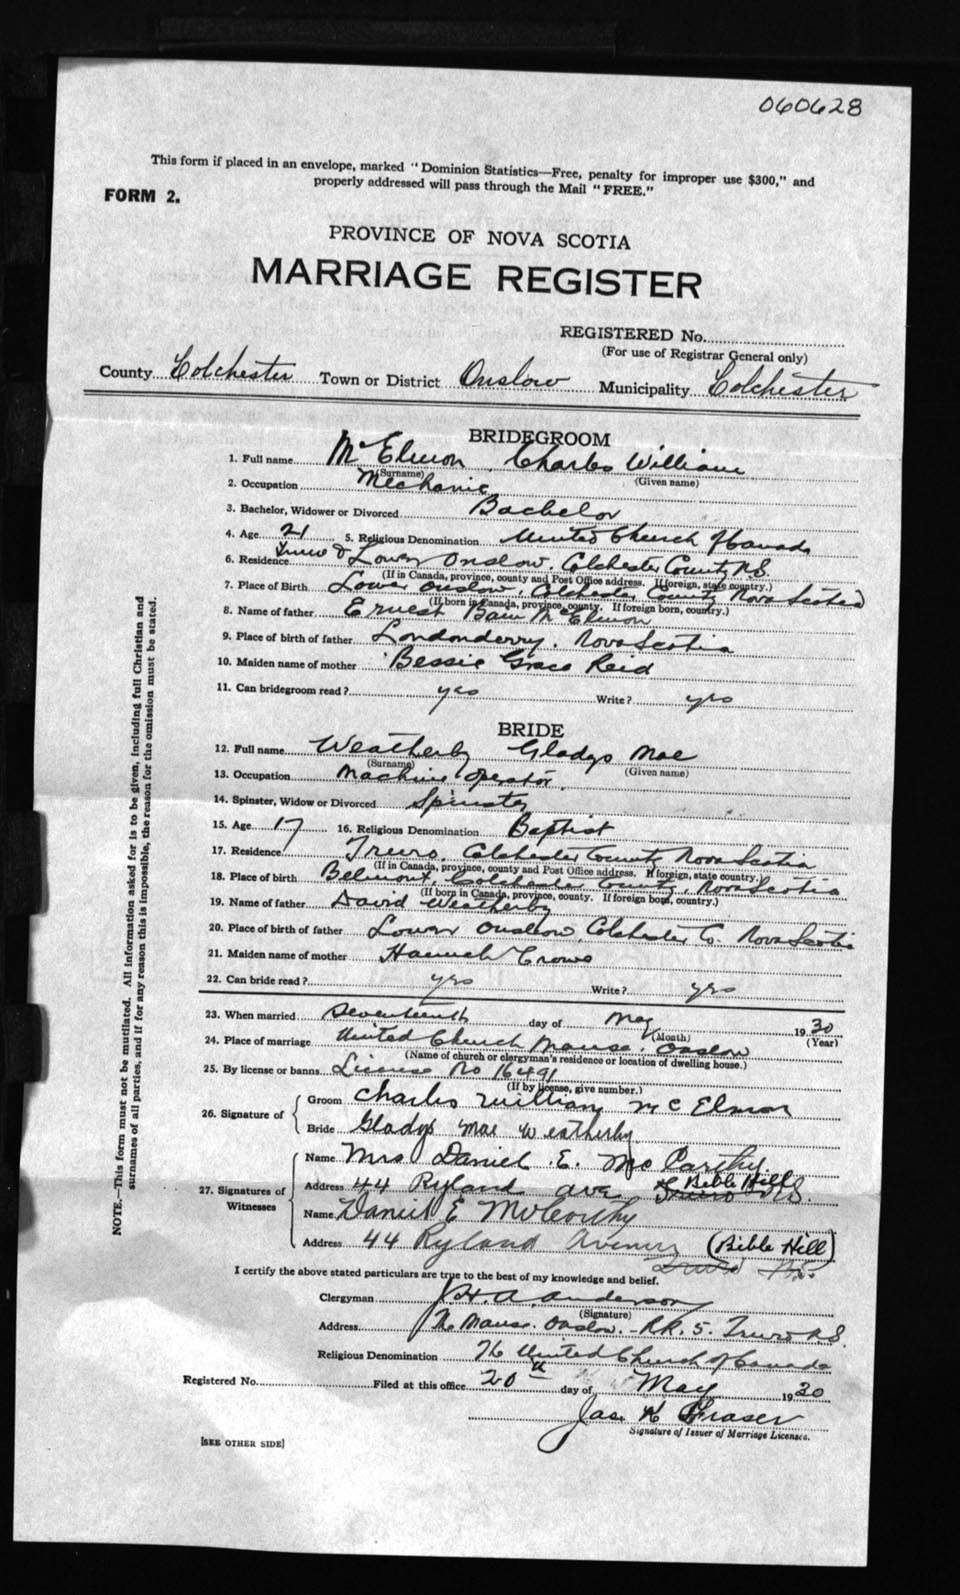 060628
This form if placed in an envelope, marked "Dominion Statistics—Free, penalty for improper use $300," and
properly addressed will pass through the Mail "FREE."
FORM 2.
PROVINCE OF NOVA SCOTIA
MARRIAGE REGISTER
REGISTERED No.
(For use of Registrar General only)
County Colchester Town or District Onslow Municipality Colchester
BRIDEGROOM
1. Full name McElmon, Charles William
(Surname) (Given name)
2. Occupation Mechanic
3. Bachelor, Widower or Divorced Bachelor
4. Age 21 5. Religious Denomination United Church of Canada
6. Residence Truro & Lower Onslow, Colchester County N.S.
(If in Canada, province, county and Post Office address. If foreign, state country.)
7. Place of Birth Lower Onslow, Colchester County Nova Scotia
(If born in Canada, province, county. If foreign born, country.)
8. Name of father Ernest McElmon
9. Place of birth of father Londonderry, Nova Scotia
10. Maiden name of mother Bessie Grace Reid
11. Can bridegroom read? yes Write? yes
BRIDE
12. Full name Weatherby Gladys Mae
(Surname) (Given name)
13. Occupation Machine Operator.
14. Spinster, Widow or Divorced Spinster
15. Age 17 16. Religious Denomination Baptist
17. Residence Truro, Colchester County Nova Scotia
(If in Canada, province, county and Post Office address. If foreign, state country.)
18. Place of birth Belmont, Colchester County, Nova Scotia
(If born in Canada, province, county. If foreign born, country.)
19. Name of father David Weatherby
20. Place of birth of father Lower Onslow, Colchester Co. Nova Scotia
21. Maiden name of mother Hannah Crowe
22. Can bride read? yes Write? yes
23. When married Seventeenth day of May 1930
(Month) (Year)
24. Place of marriage United Church Manse, Onslow
(Name of church or clergyman's residence or location of dwelling house.)
25. By license or banns License No 16491
(If by license, give number.)
26. Signature of
Groom Charles William McElmon
Bride Gladys Mae Weatherby
27. Signatures of Witnesses
Name Mrs Daniel E. McCarthy.
Address 44 Ryland Ave Truro Bible Hill N.S.
Name Daniel E McCarthy
Address 44 Ryland Avenue (Bible Hill)
Truro N.S.
I certify the above stated particulars are true to the best of my knowledge and belief.
Clergyman J.H.A. Anderson
(Signature)
Address The Manse. Onslow. R.R. 5. Truro N.S.
Religious Denomination The United Church of Canada
Registered No. Filed at this office 20th day of May 1930
Jas. K Fraser
Signature of Issuer of Marriage Licenses.
[SEE OTHER SIDE]
NOTE.—This form must not be mutilated. All information asked for is to be given, including full Christian and
surnames of all parties, and if for any reason this is impossible, the reason for the omission must be stated.